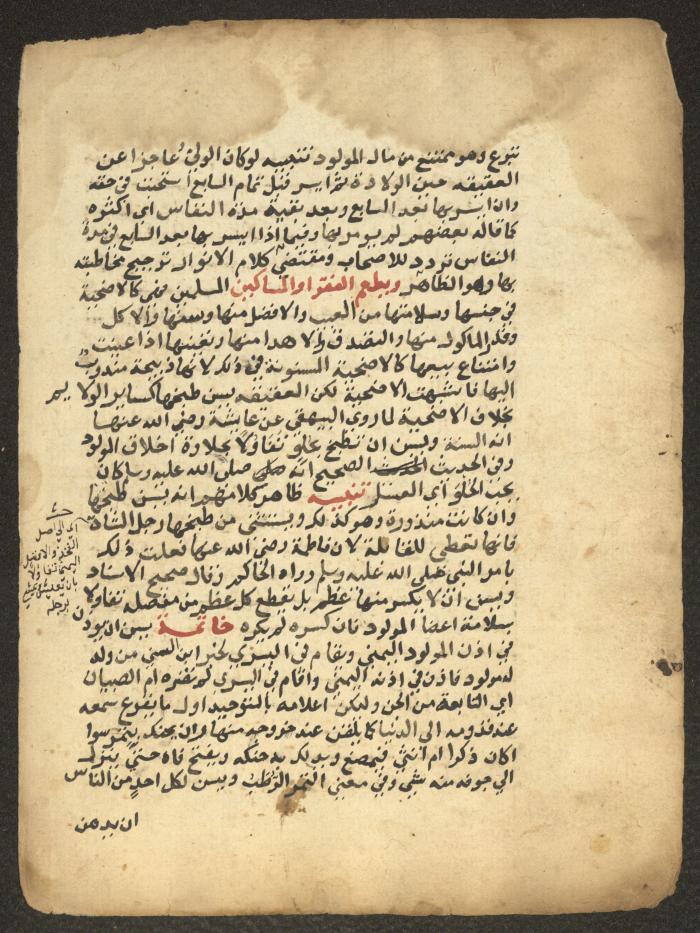 تبرع وهو ممتنع من مال المولود تنبيه لو كان الولي عاجزا عن
العقيقه حين الولادة ثم ايسر قبل تمام السابع استحبت في حقه
وان ايسر بها بعد السابع وبعد بقية مدة النفاس اي اكثره
كما قاله بعضهم لم يومر بها وفيما اذا ايسر بها بعد السابع في مدة
النفاس تردد للاصحاب ومقتضى كلام الانوار ترجيح مخاطبته
بها وهو الظاهر ويطعم الفقرا والمساكين المسلمين فهي كالاضحية
في جنسها وسلامتها من العيب والافضل منها وسنها والاكل
وقدر الماكول منها والتصدق والاهدا منها وتعينها اذا عينت
وامتناع بيعها كالاضحية المسنونة في ذلك لانها ذبيحة مندوب
اليها فاشبهت الاضحية لكن العقيقه يسن طبخها كساير الولايم
بخلاف الاضحية لما روى البيهقي عن عايشة رضي الله عنها
انه السنة ويسن ان تطبخ بحلو تفاولا بحلاوة اخلاق المولود
وفي الحديث الصحيح انه صلى الله عليه وسلم كان
يحب الحلو اي العسل تنبيه ظاهر كلامهم انه يسن طبخها
وان كانت منذورة وهو كذلك ويستثنى من طبخها رجل الشاة
فانها تعطى للقابلة لان فاطمة رضي الله عنها فعلت ذلك
بامر النبي صلى الله عليه وسلم رواه الحاكم وقال صحيح الاسناد
ويسن ان لا يكسر منها عظم بل يقطع كل عظم من مفصله تفاولا
بسلامة اعضا المولود فان كسره لم يكره خاتمة يسن ان يوذن
في اذن المولود اليمنى ويقام في اليسرى لخبر ابن السني من ولد
له مولود فاذن في اذنه اليمنى واقام في اليسرى لم تضره ام الصبيان
اي التابعة من الجن وليكن اعلامه بالتوحيد اول ما يقرع سمعه
عند قدومه الى الدنيا كما يلقن عند خروجه منها وان يحنك بتمر سوا
اكان ذكرا ام انثى فيمضغ ويدلك به حنكه ويفتح فاه حتى ينزل
الى جوفه منه شي وفي معنى التمر الرطب ويسن لكل احد من الناس
ان يدهن
اي الى اصل
الفخذ والافضل
اليمنى تفاولا
بانه يعيش ويمشي
برجله